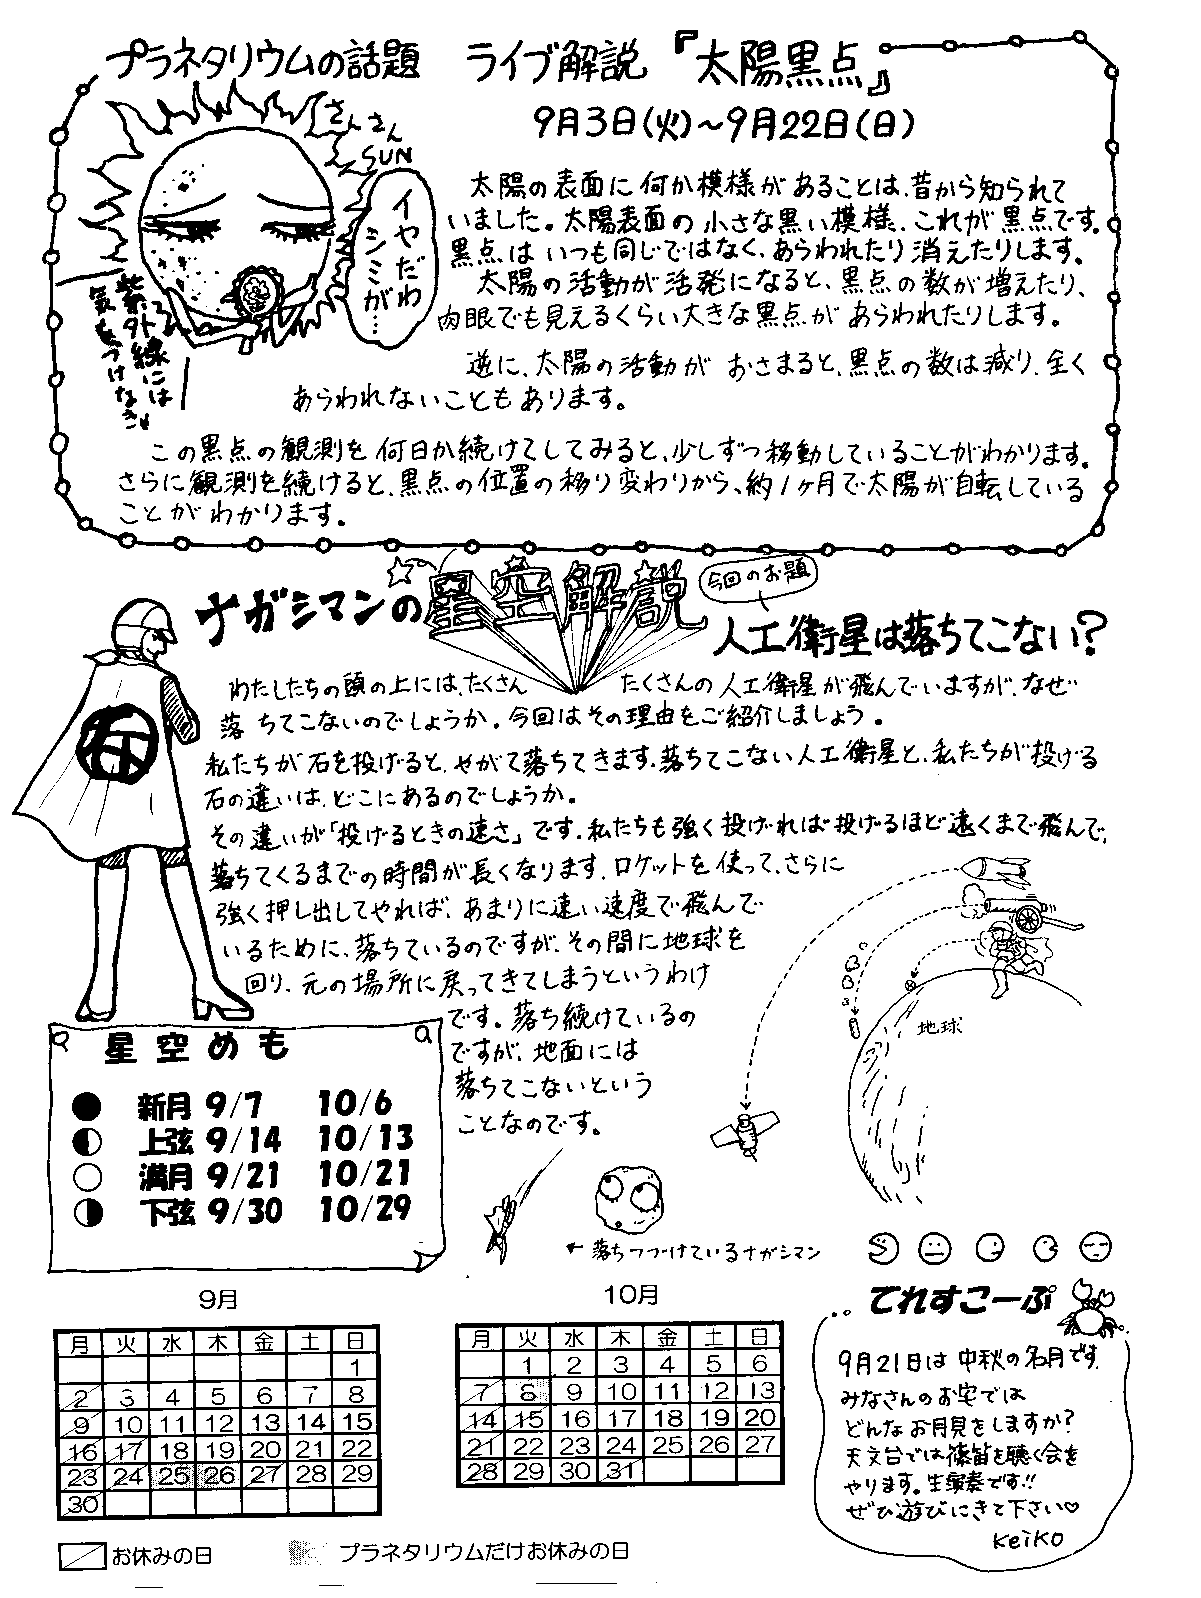 プラネタリウムの話題　ライブ解説『太陽黒点』
9月3日(火)～9月22日(日)
さんさん
SUN
イヤだわ
シミが…
紫外線には
気をつけなきゃ
太陽の表面に何か模様があることは、昔から知られて
いました。太陽表面の小さな黒い模様、これが黒点です。
黒点はいつも同じではなく、あらわれたり消えたりします。
太陽の活動が活発になると、黒点の数が増えたり、
肉眼でも見えるくらい大きな黒点があらわれたりします。
逆に、太陽の活動がおさまると、黒点の数は減り、全く
あらわれないこともあります。
この黒点の観測を何日か続けてしてみると、少しずつ移動していることがわかります。
さらに観測を続けると、黒点の位置の移り変わりから、約1ヶ月で太陽が自転している
ことがわかります。
ナガシマンの星空解説
今回のお題
人工衛星は落ちてこない?
わたしたちの頭の上には、たくさん　たくさんの人工衛星が飛んでいますが、なぜ
落ちてこないのでしょうか。今回はその理由をご紹介しましょう。
私たちが石を投げると、やがて落ちてきます。落ちてこない人工衛星と、私たちが投げる
石の違いは、どこにあるのでしょうか。
その違いが「投げるときの速さ」です。私たちも強く投げれば投げるほど遠くまで飛んで、
落ちてくるまでの時間が長くなります。ロケットを使って、さらに
強く押し出してやれば、あまりに速い速度で飛んで
いるために、落ちているのですが、その間に地球を
回り、元の場所に戻ってきてしまうというわけ
です。落ち続けているの
ですが、地面には
落ちてこないという
ことなのです。
地球
←落ちつづけているナガシマン
星空めも
新月 9/7 10/6
上弦 9/14 10/13
満月 9/21 10/21
下弦 9/30 10/29
9月
月 火 水 木 金 土 日
1
2 3 4 5 6 7 8
9 10 11 12 13 14 15
16 17 18 19 20 21 22
23 24 25 26 27 28 29
30
10月
月 火 水 木 金 土 日
1 2 3 4 5 6
7 8 9 10 11 12 13
14 15 16 17 18 19 20
21 22 23 24 25 26 27
28 29 30 31
お休みの日
プラネタリウムだけお休みの日
てれすこーぷ
9月21日は中秋の名月です。
みなさんのお宅では
どんなお月見をしますか?
天文台では篠笛を聴く会を
やります。生演奏です!!
ぜひ遊びにきて下さい♡
Keiko